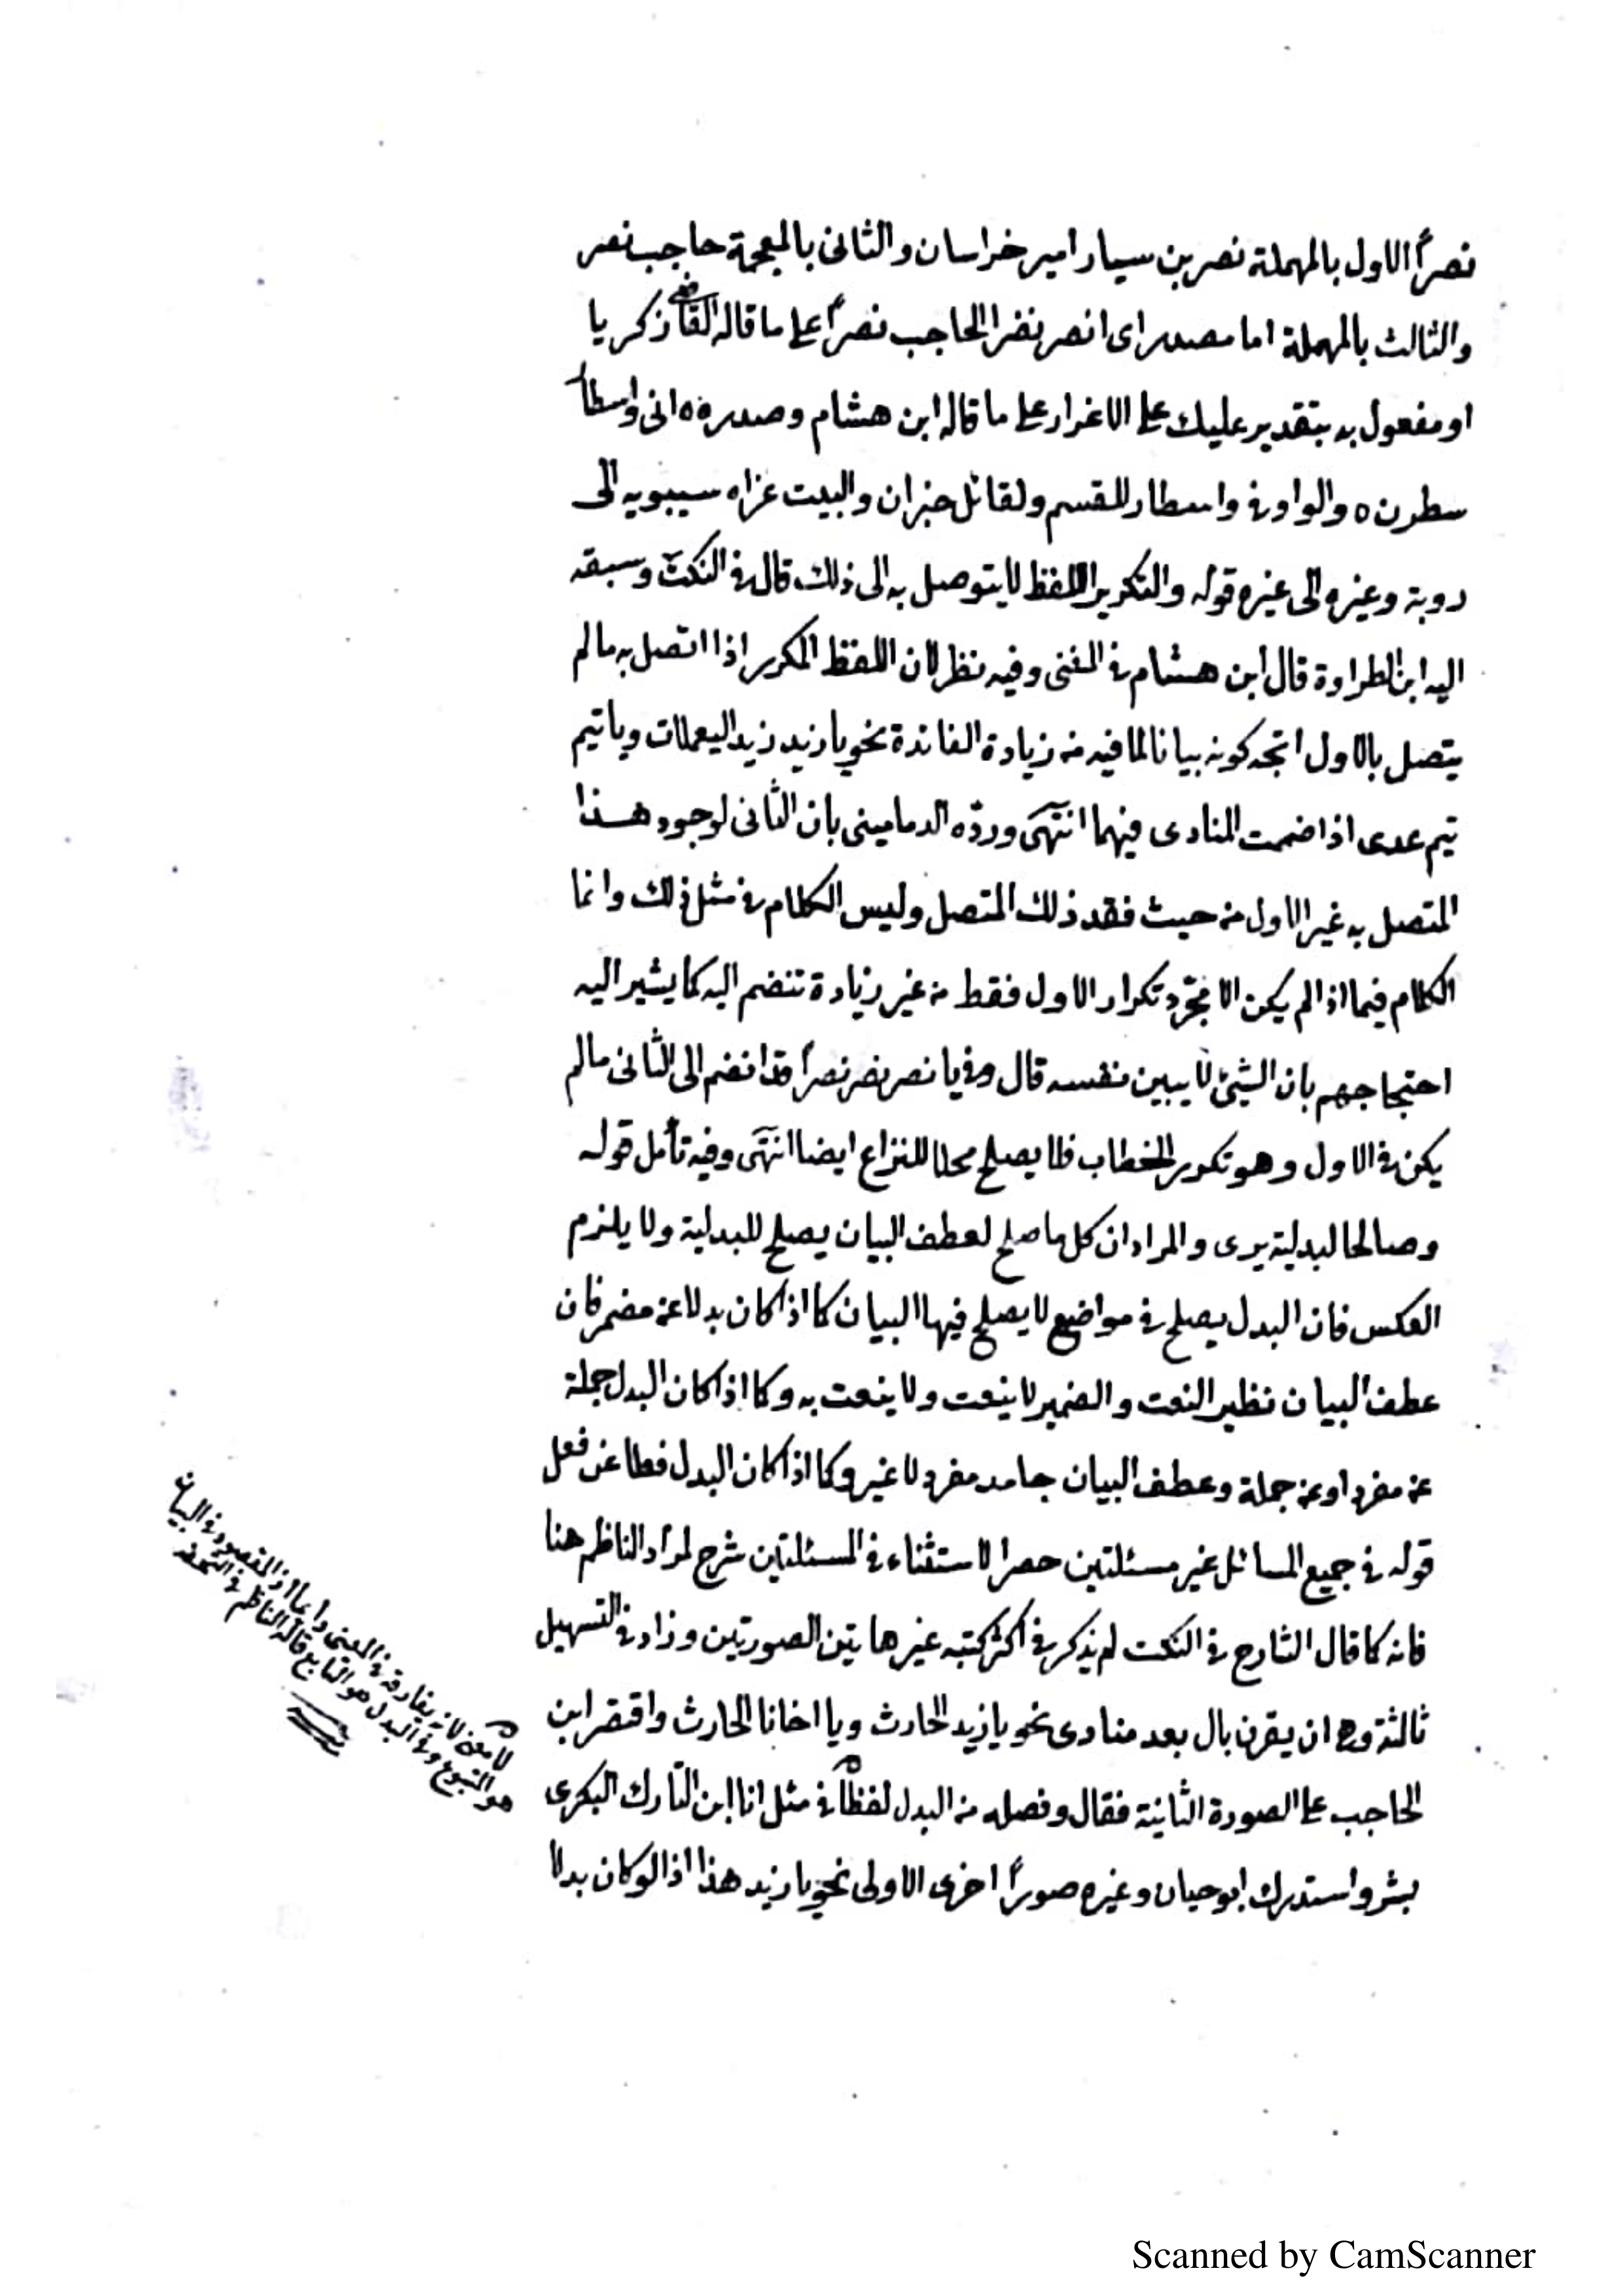 نصراً الاول بالمهملة نصر بن سيار امير خراسان والثانى بالمعجمة حاجب نصر
والثالث بالمهملة اما مصدر اى انصر نضر الحاجب نصراً على ما قاله القاضى زكريا
او مفعول به بتقدير عليك على الاغراء على ما قاله ابن هشام وصدره ه انى واسطار
سطرن ه والواو فى واسطار للقسم ولقائل خبر ان والبيت عزاه سيبويه الى
روبة وغيره الى غيره قوله والتكرير اللفظ لا يتوصل به الى ذلك قال فى النكت وسبقه
اليه ابن الطراوة قال ابن هشام فى المغنى وفيه نظر لان اللفظ المكرر اذا اتصل به ما لم
يتصل بالاول اتجه كونه بيانا لما فيه من زيادة الفائدة نحو يا زيد زيد اليعملات ويا تيم
تيم عدى اذا ضممت المنادى فيهما انتهى وردّه الدمامينى بان الثانى لوجود هذا
المتصل به غير الاول من حيث فقد ذلك المتصل وليس الكلام فى مثل ذلك وانما
الكلام فيما اذا لم يكن الا مجرّد تكرار الاول فقط من غير زيادة تنضم اليه كما يشير اليه
احتجاجهم بان الشيئ لا يبين نفسه قال وفى يا نصر نصر نصراً قد انضم الى الثانى ما لم
يكن فى الاول وهو تكرير الخطاب فلا يصلح محلا للنزاع ايضا انتهى وفيه تأمل قوله
وصالحا لبدلية يرى والمراد ان كل ما صلح لعطف البيان يصلح للبدلية ولا يلزم
العكس فان البدل يصلح فى مواضع لا يصلح فيها البيان كما اذا كان بدلا عن مضمر فان
عطف البيان نظير النعت والضمير لا ينعت ولا ينعت به وكما اذا كان البدل جملة
عن مفرد او عن جملة وعطف البيان جامد مفرد لا غير وكما اذا كان البدل فعلا عن فعل
قوله فى جميع المسائل غير مسئلتين حصر الاستثناء فى المسئلتين شرح لمراد الناظم هنا
فانه كما قال الشارح فى النكت لم يذكر فى اكثر كتبه غير هاتين الصورتين وزاد فى التسهيل
ثالثة وهى ان يقرن بال بعد منادى نحو يا زيد الحارث ويا اخانا الحارث واقتصر ابن
الحاجب على الصورة الثانية فقال وفصله من البدل لفظاً فى مثل انا ابن التارك البكرى
بشر واستدرك ابو حيان وغيره صوراً اخرى الاولى نحو يا زيد هذا اذ لو كان بدلا
لا معنى لانه يفارقه فى المعنى دائما اذ المقصود فى البيان
هو المتبوع وفى البدل هو التابع قاله الناظم فى التحفه
Scanned by CamScanner